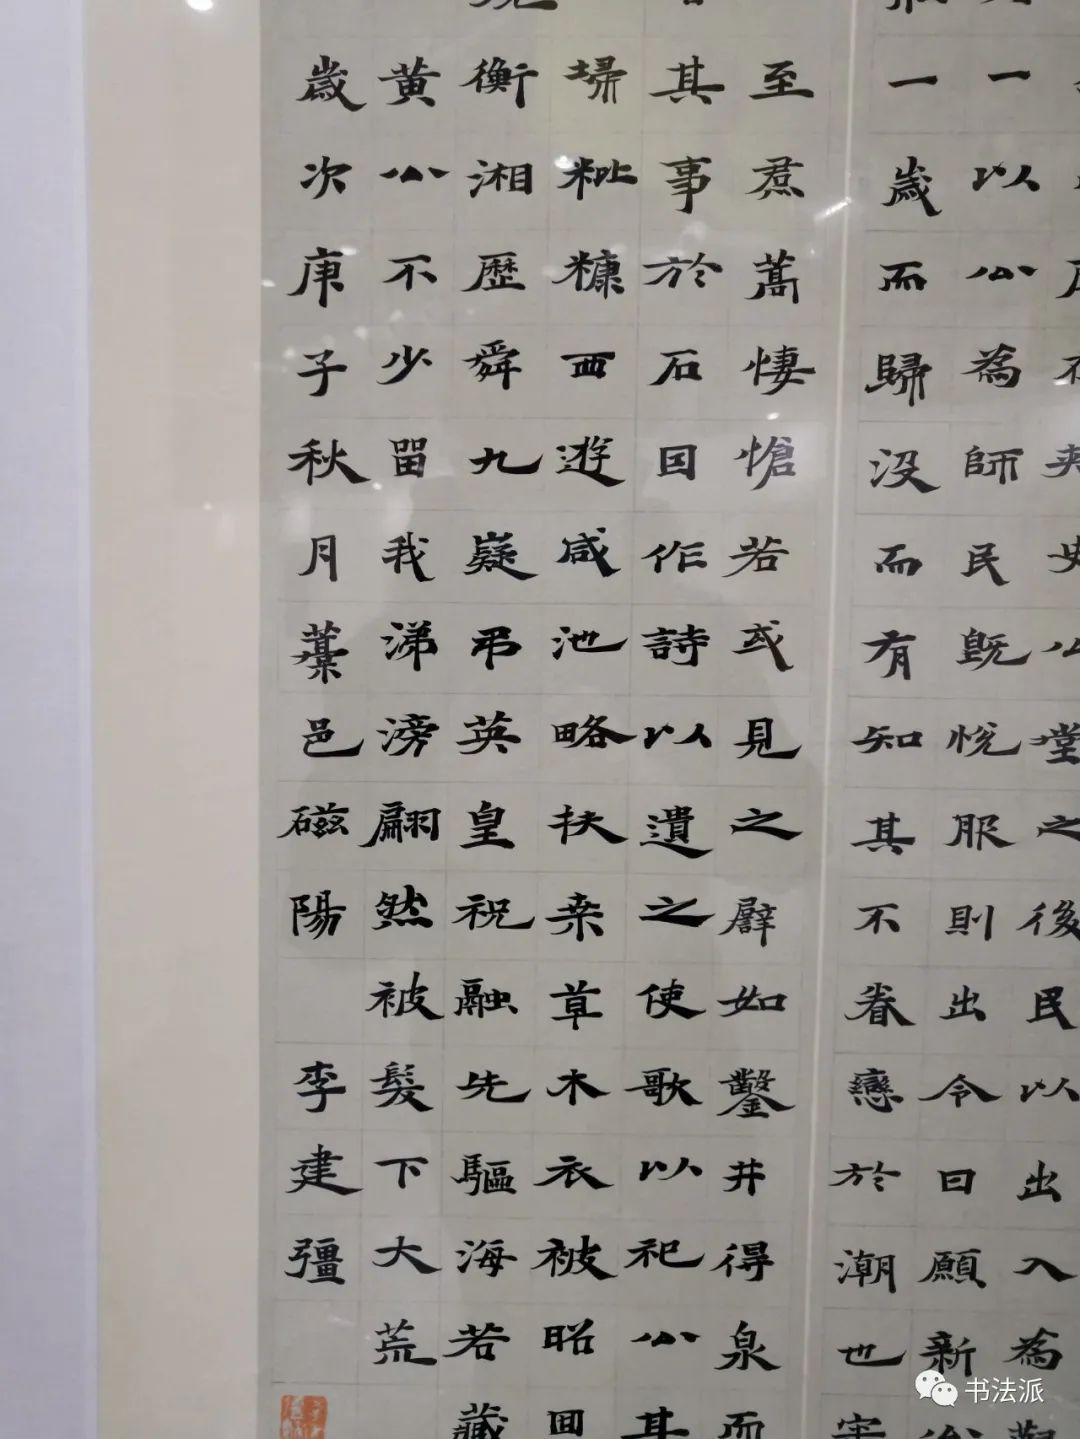 一以公為師民既悅服則出令曰願新
一歲而歸沒而有知其不眷戀於潮也
至焄蒿悽愴若或見之譬如鑿井得泉而
其事於石因作詩以遺之使歌以祀公其
埽粃糠西遊咸池略扶桒草木衣被昭回
衡湘歷舜九嶷弔英皇祝融先驅海若藏
黄公不少留我涕滂翩然被髮下大荒
歲次庚子秋月藁邑磁陽 李建彊
书法派